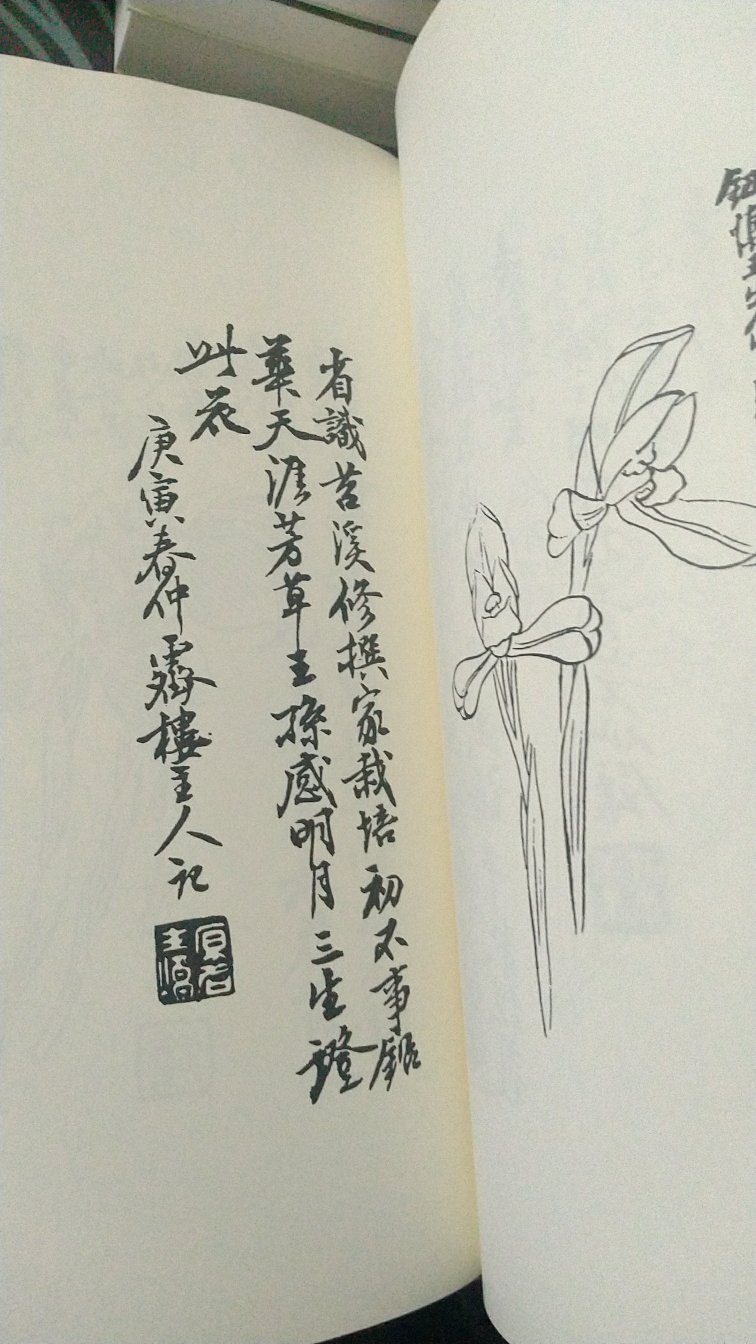 省識苕溪修撰家栽培初不事鉛
華天涯芳草王孫感明月三生證
此花
庚寅春仲霽樓主人記